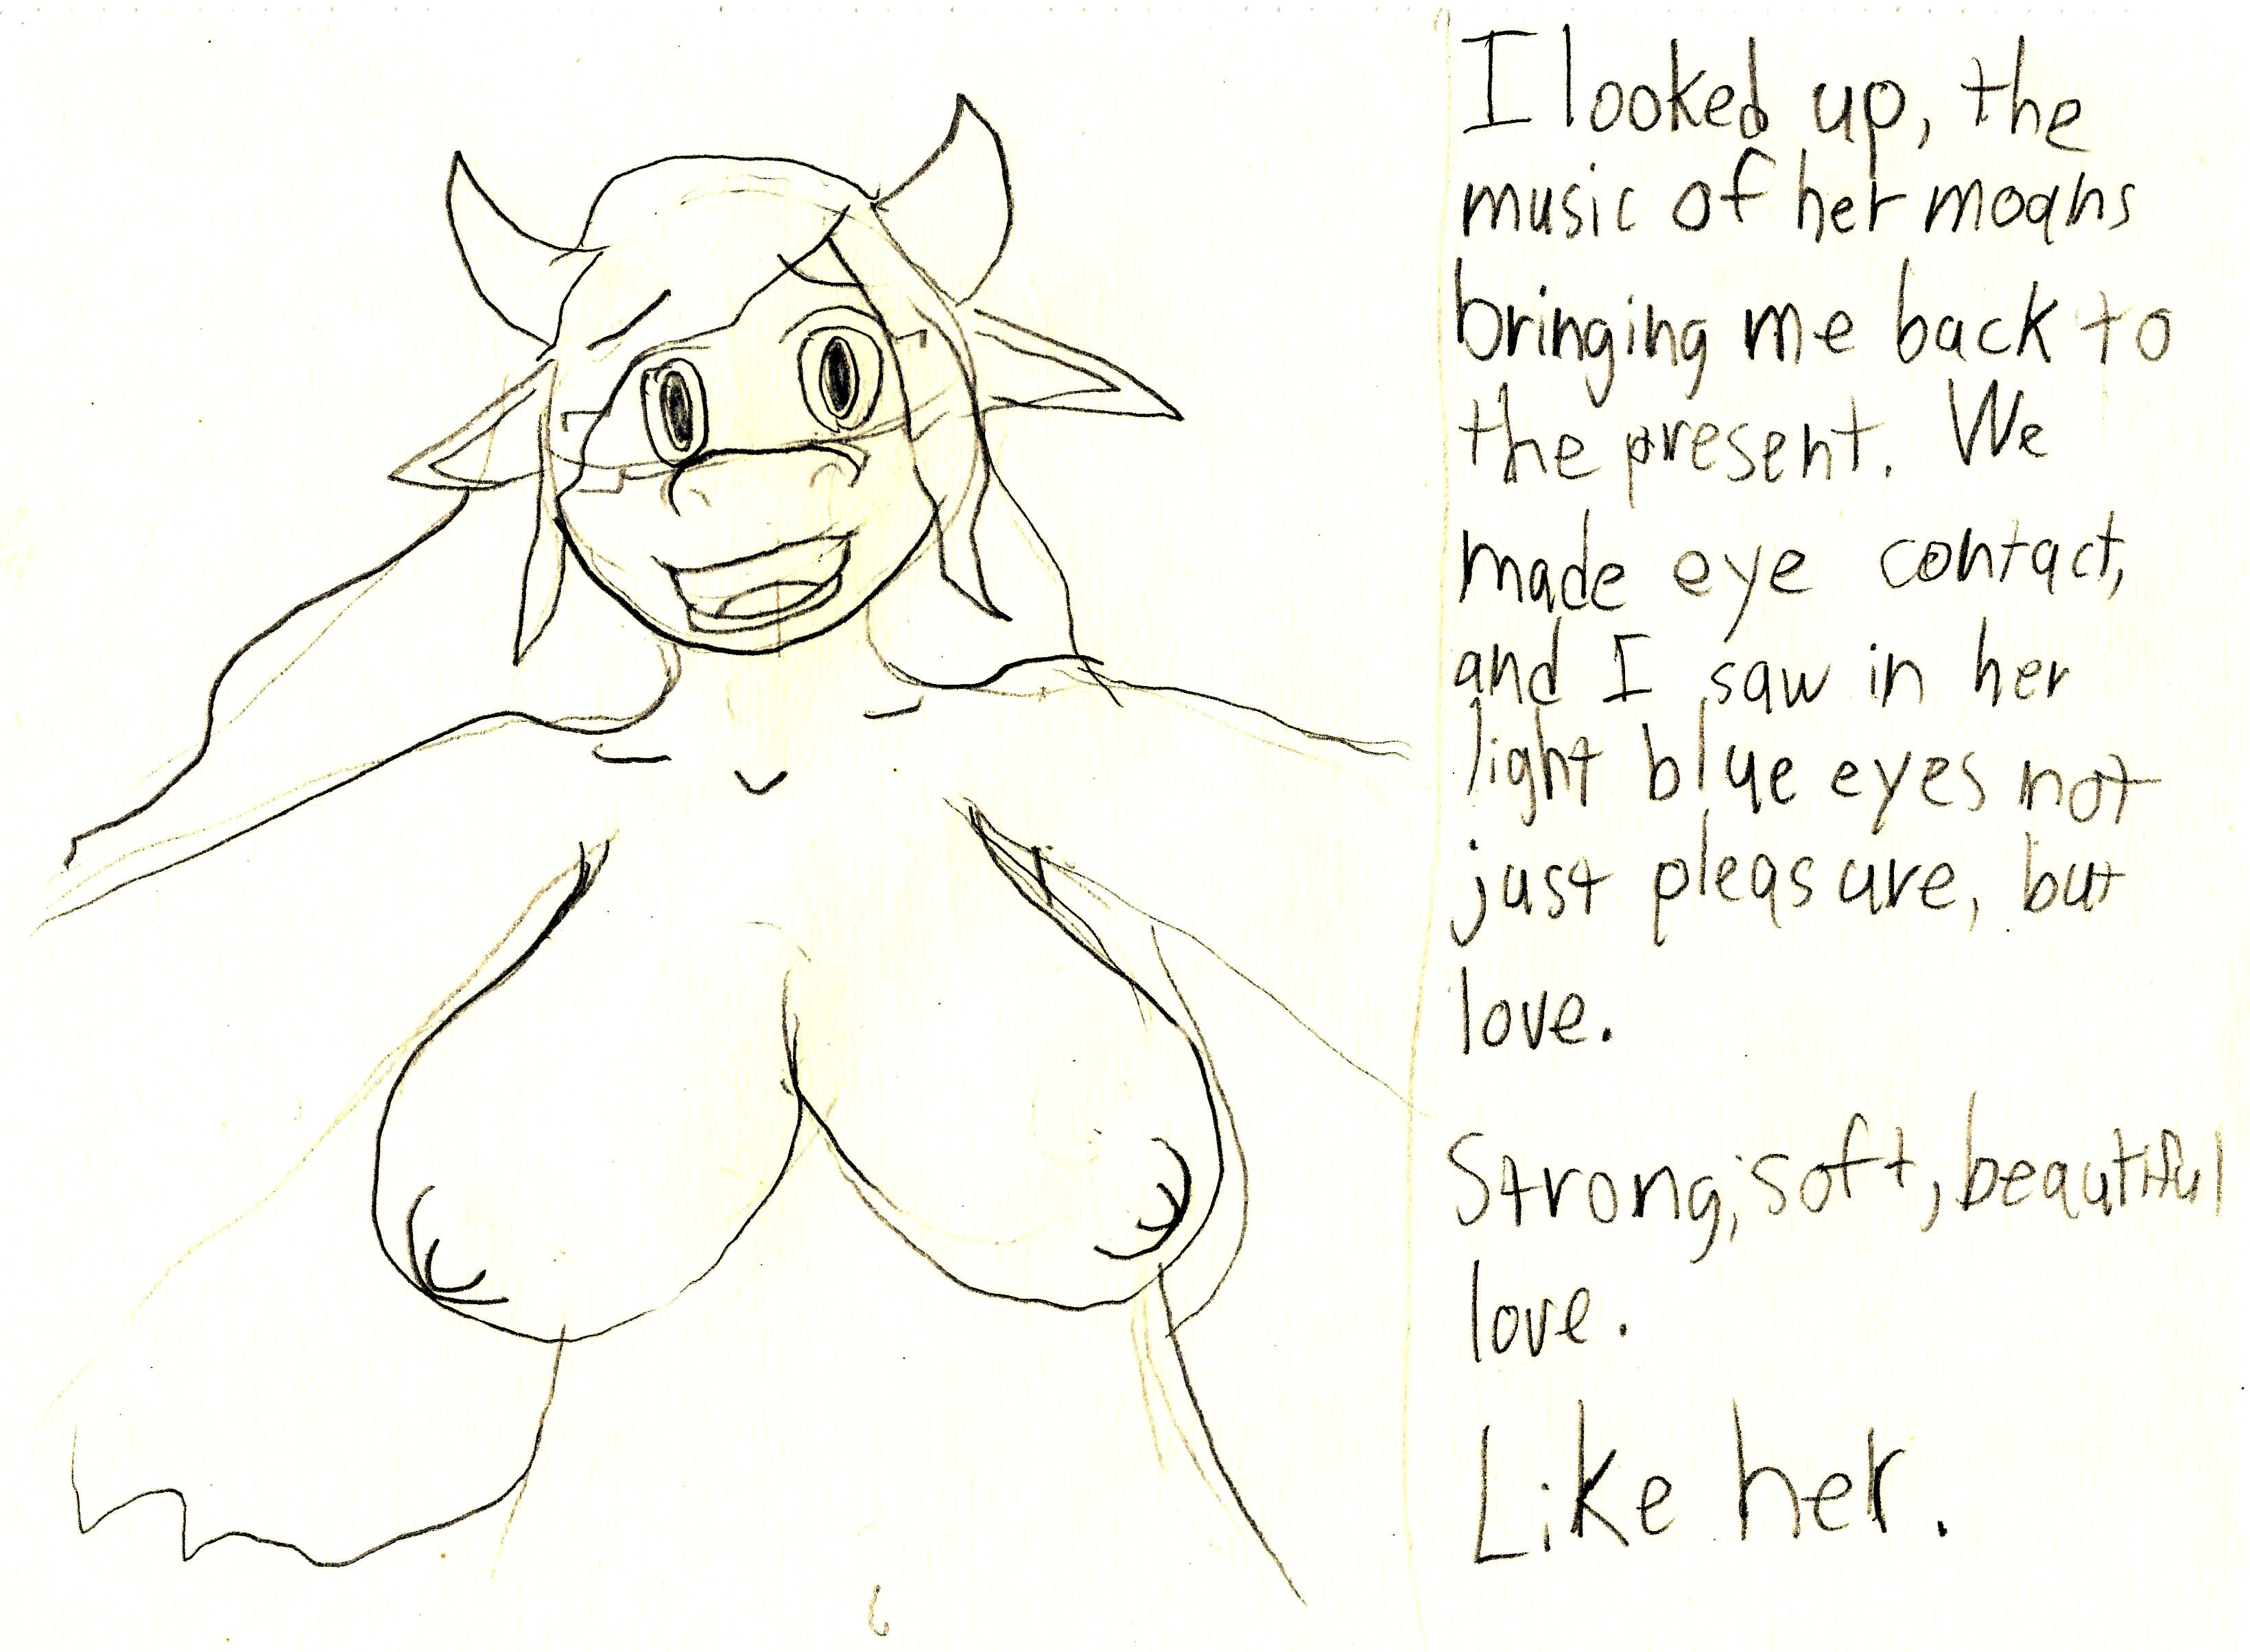 I looked up, the
music of her moans
bringing me back to
the present. We
made eye contact,
and I saw in her
light blue eyes not
just pleasure, but
love.
Strong, soft, beautiful
love.
Like her.